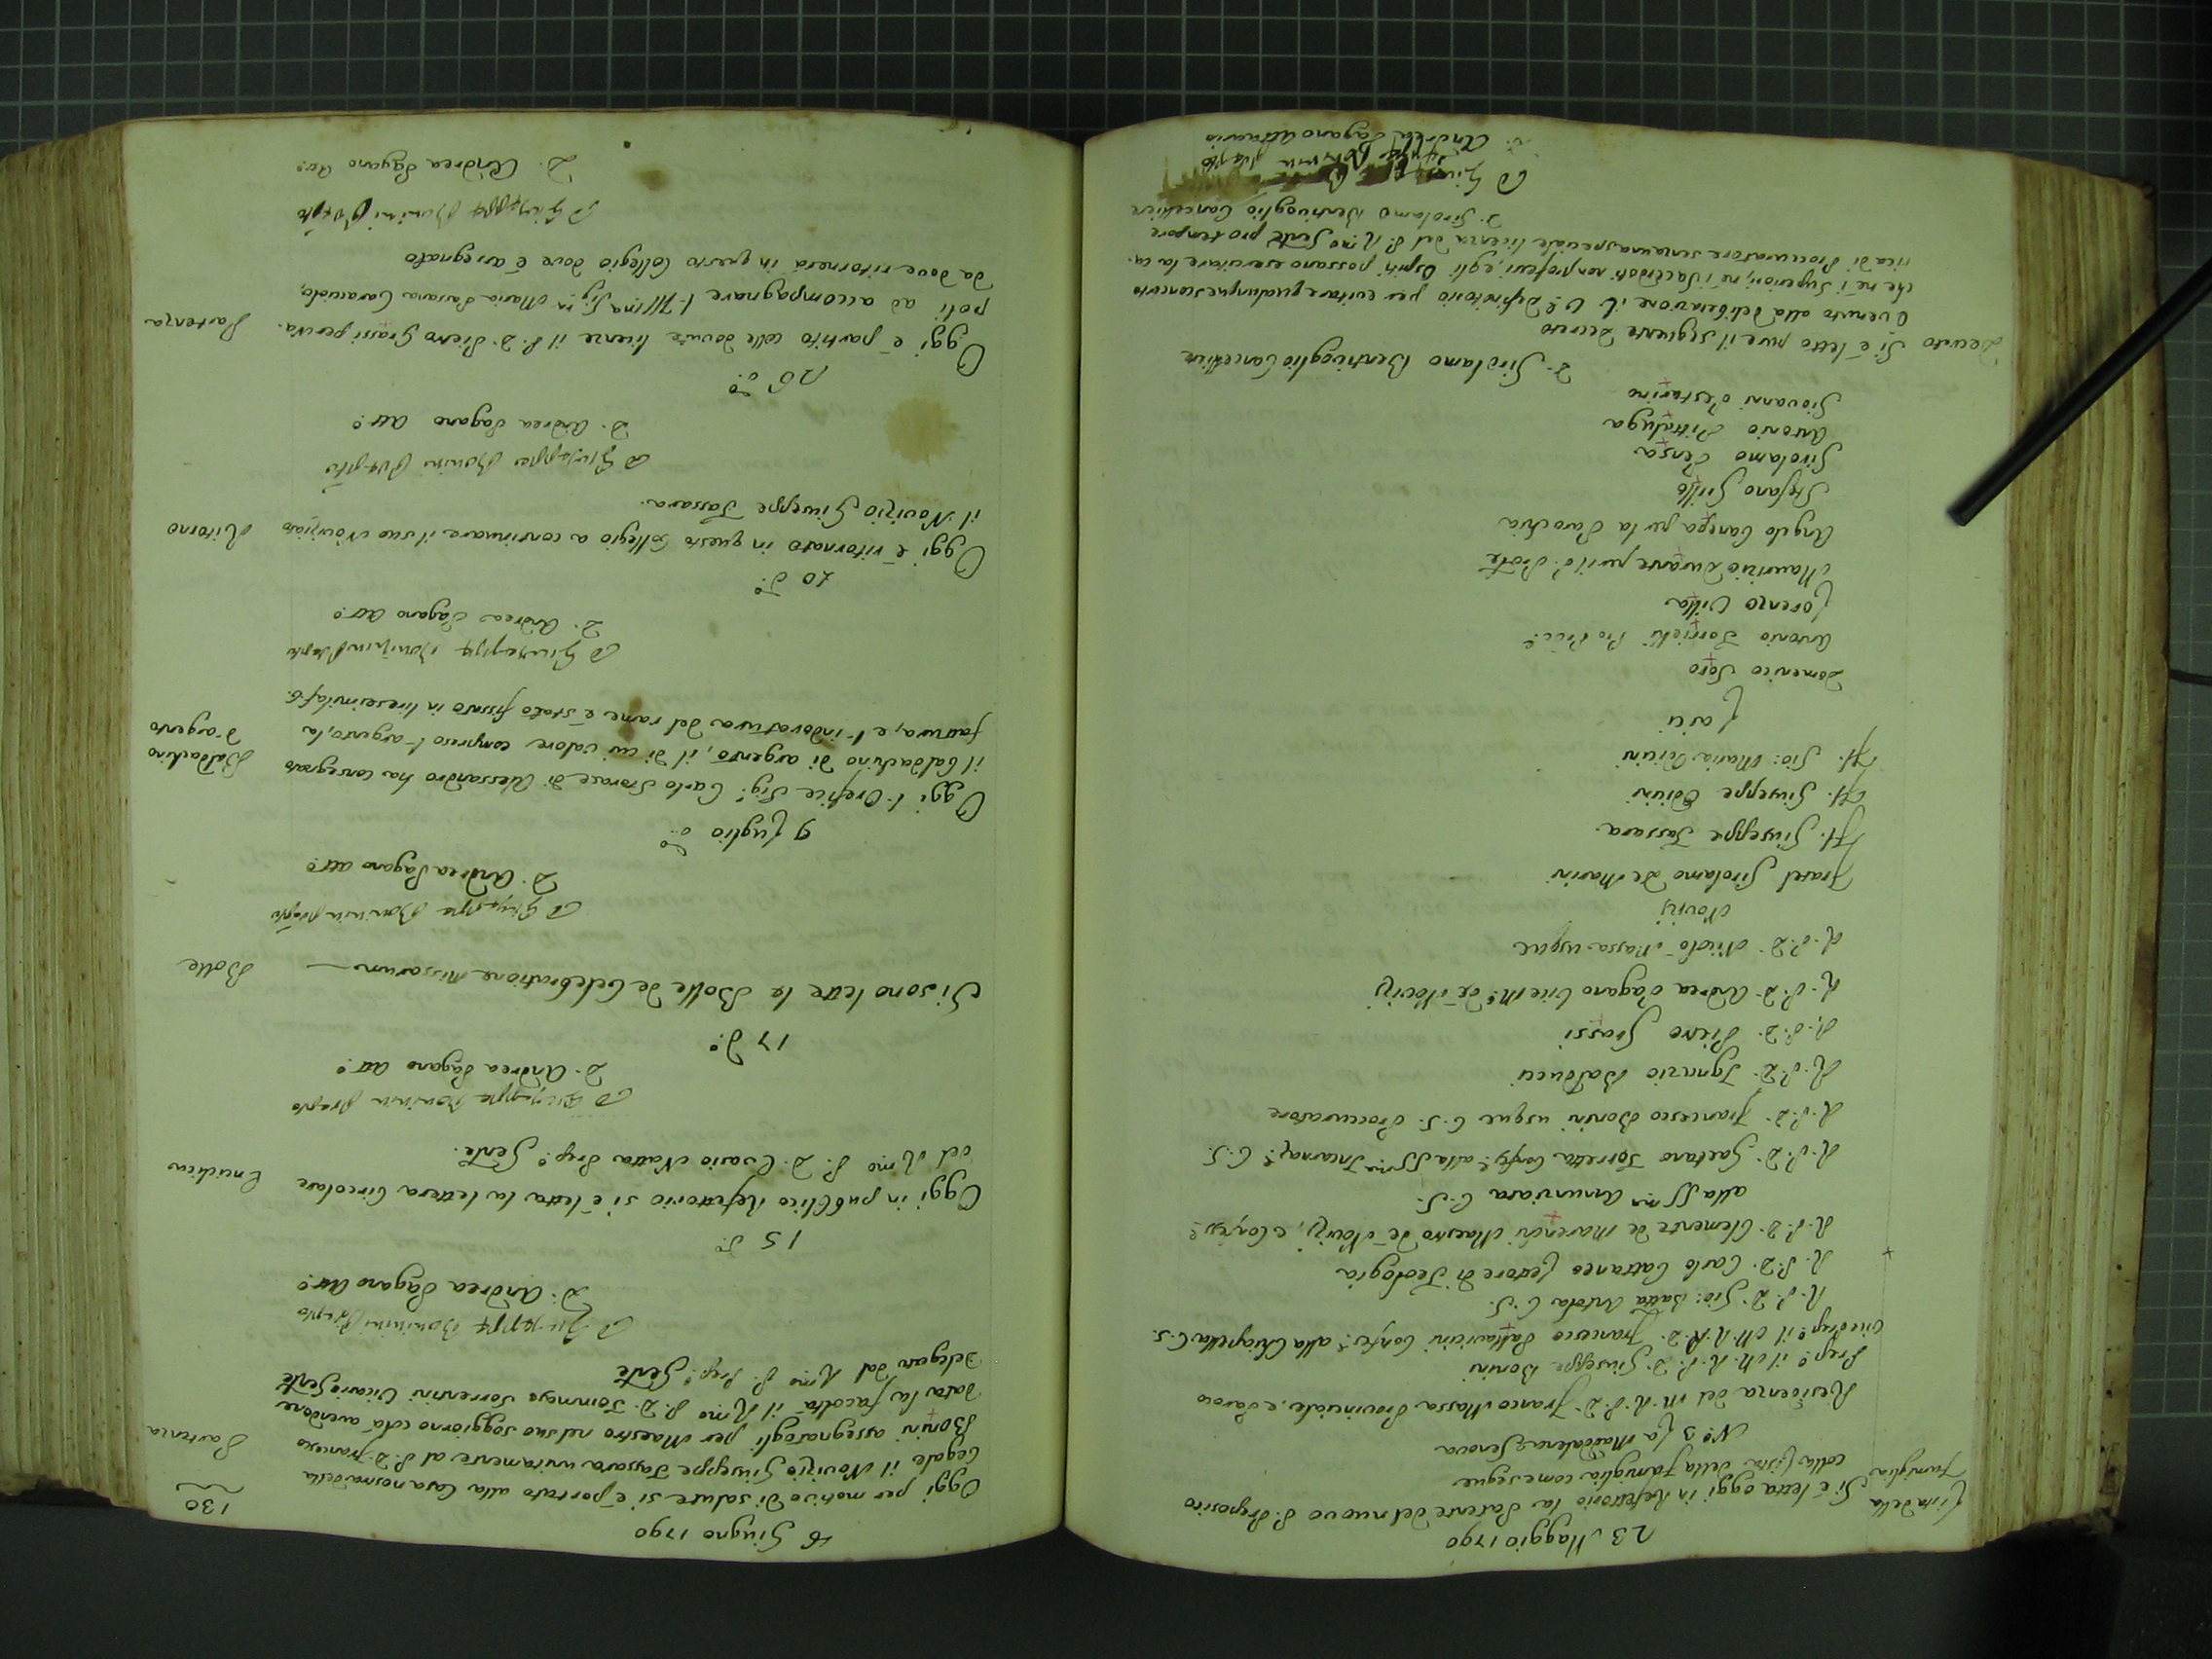 23 Maggio 1790
Lista della Si è letta oggi in Refettorio la Patente del nuovo P. Preposito
Famiglia colla lista della famiglia come segue
N.º 3 La Maddalena Genova
Residenza del M. R. P. D. Franco Massa Provinciale, e Paroco
Prep.º il M. R. P. D. Giuseppe Bonini
Viceprep.º il M. R. P. D. Francesco Pallavicini Confes.e alla Chiapella C. S.
R. P. D. Gio: Batta Antola C. S.
R. P. D. Carlo Cattaneo Lettore di Teologia
R. P. D. Clemente de Marenchi Maestro de Novizj, e Confess.e
alla SS.ma Annunziata C. S.
R. P. D. Gaetano Torretta Confes.e alla SS.ma Incarnaz.e C. S.
R. P. D. Francesco Bonini usque C. S. Proccuratore
R. P. D. Ignazio Balducci
R. P. D. Pietro Grassi
R. P. D. Andrea Pagano Vice M.º de Novizj
R. P. D. Nicolò Massa usque
Novizj
Fratel Girolamo De Marini
Fl. Giuseppe Tassara
Fl. Giuseppe Odicini
Fl. Gio: Maria Odicini
Laici
Domenico Soro
Antonio Torrielli
Lorenzo Villa
Maurizio Durante per il P. Prov.le
Angelo Canepa per la Parochia
Stefano Grillo
Girolamo Pensa
Antonio Pittaluga
Giovanni Pestarino
D. Girolamo Bentivoglio Cancelliere
Decreto Si è letto pure il seguente Decreto
È venuto alla deliberazione il V.e Definitorio per evitare qualunque sconcerto
che nè i Superiori, nè i Sacerdoti non professi, e gli Ospiti possano esercitare la ca-
rica di Proccuratore senza una speciale licenza del P. R.mo Gen.le pro tempore
D. Girolamo Bentivoglio Cancelliere
D Giuseppe Bonini Prep.to
D. Andrea Pagano Attuario
130
6 Giugno 1790
Oggi per motivo di salute si è portato alla Casa nostra della
Partenza Cegale il Novizio Giuseppe Tassara unitamente al P. D. Francesco
Bonini assegnatogli per Maestro nel suo soggiorno colà avendone
data la facoltà il R.mo P. D. Tommaso Sorrentini Vicario Gen.le
delegato dal R.mo P. Prep.º Gen.le
D Giuseppe Bonini Prep.to
D. Andrea Pagano Att.º
15 d.º
Enciclica Oggi in pubblico Refettorio si è letta la lettera Circolare
del R.mo P. D. Evasio Natta Prep.º Gen.le.
D Giuseppe Bonini Prep.to
D. Andrea Pagano Att.º
17 d.º
Bolle Si sono lette le Bolle de Celebratione Missarum
D Giuseppe Bonini Prep.to
D. Andrea Pagano Att.º
9 Luglio d.º
Baldachino Oggi l'Orefice Sig.r Carlo Storace di Alessandro ha consegnato
d'argento il baldachino di argento, il di cui valore compreso l'argento, la
fattura, e l'indoratura del rame è stato fissato in lire seimila f. b.
D Giuseppe Bonini Prep.to
D. Andrea Pagano Att.º
20 d.º
Ritorno Oggi è ritornato in questo Collegio a continuare il suo Noviziato
il Novizio Giuseppe Tassara.
D Giuseppe Bonini Prep.to
D. Andrea Pagano Att.º
26 d.º
Partenza Oggi è partito colle dovute licenze il P. D. Pietro Grassi per Na-
poli ad accompagnare l'Ill.ma Sig.ra Maria Passana Caracciolo,
da dove ritornerà in questo Collegio dove è assegnato
D Giuseppe Bonini Prep.to
D. Andrea Pagano Att.º